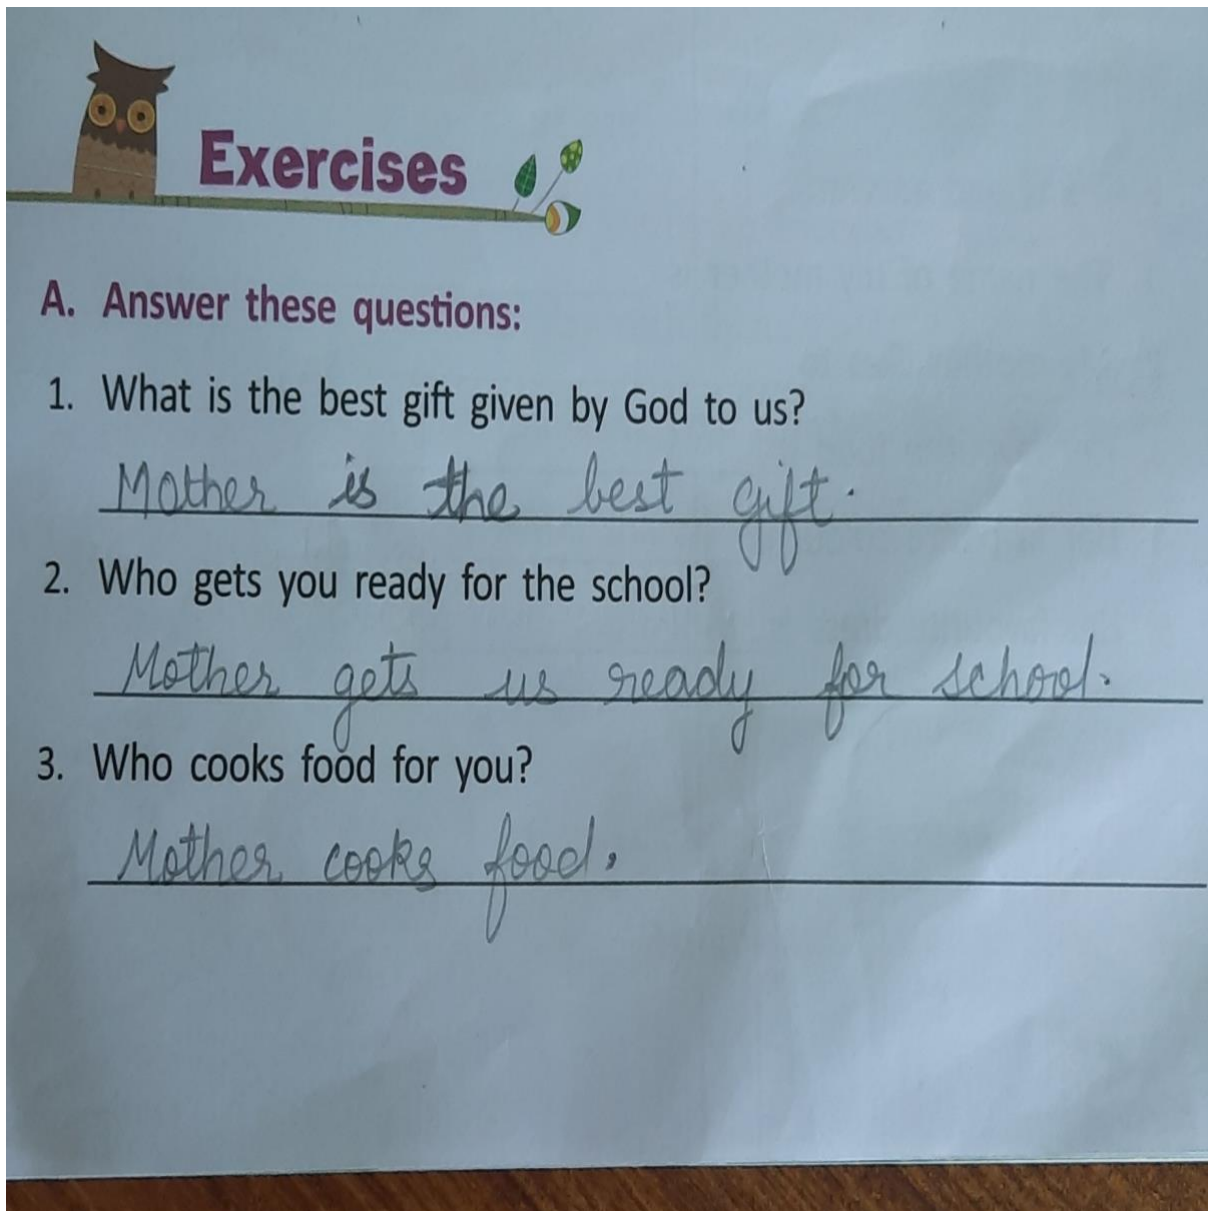 Exercises
A. Answer these questions:
1. What is the best gift given by God to us?
Mother is the best gift.
2. Who gets you ready for the school?
Mother gets us ready for school.
3. Who cooks food for you?
Mother cooks food.